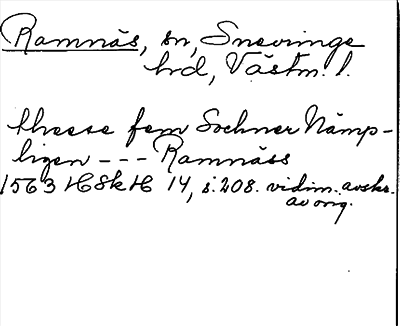 Ramnäs, sn, Snevringe
hd, Västm. l.
thesse fem Sochner Nämp-
ligen --- Ramnäss
1563 HSkH 14, s. 208. vidim. avskr.
av orig.